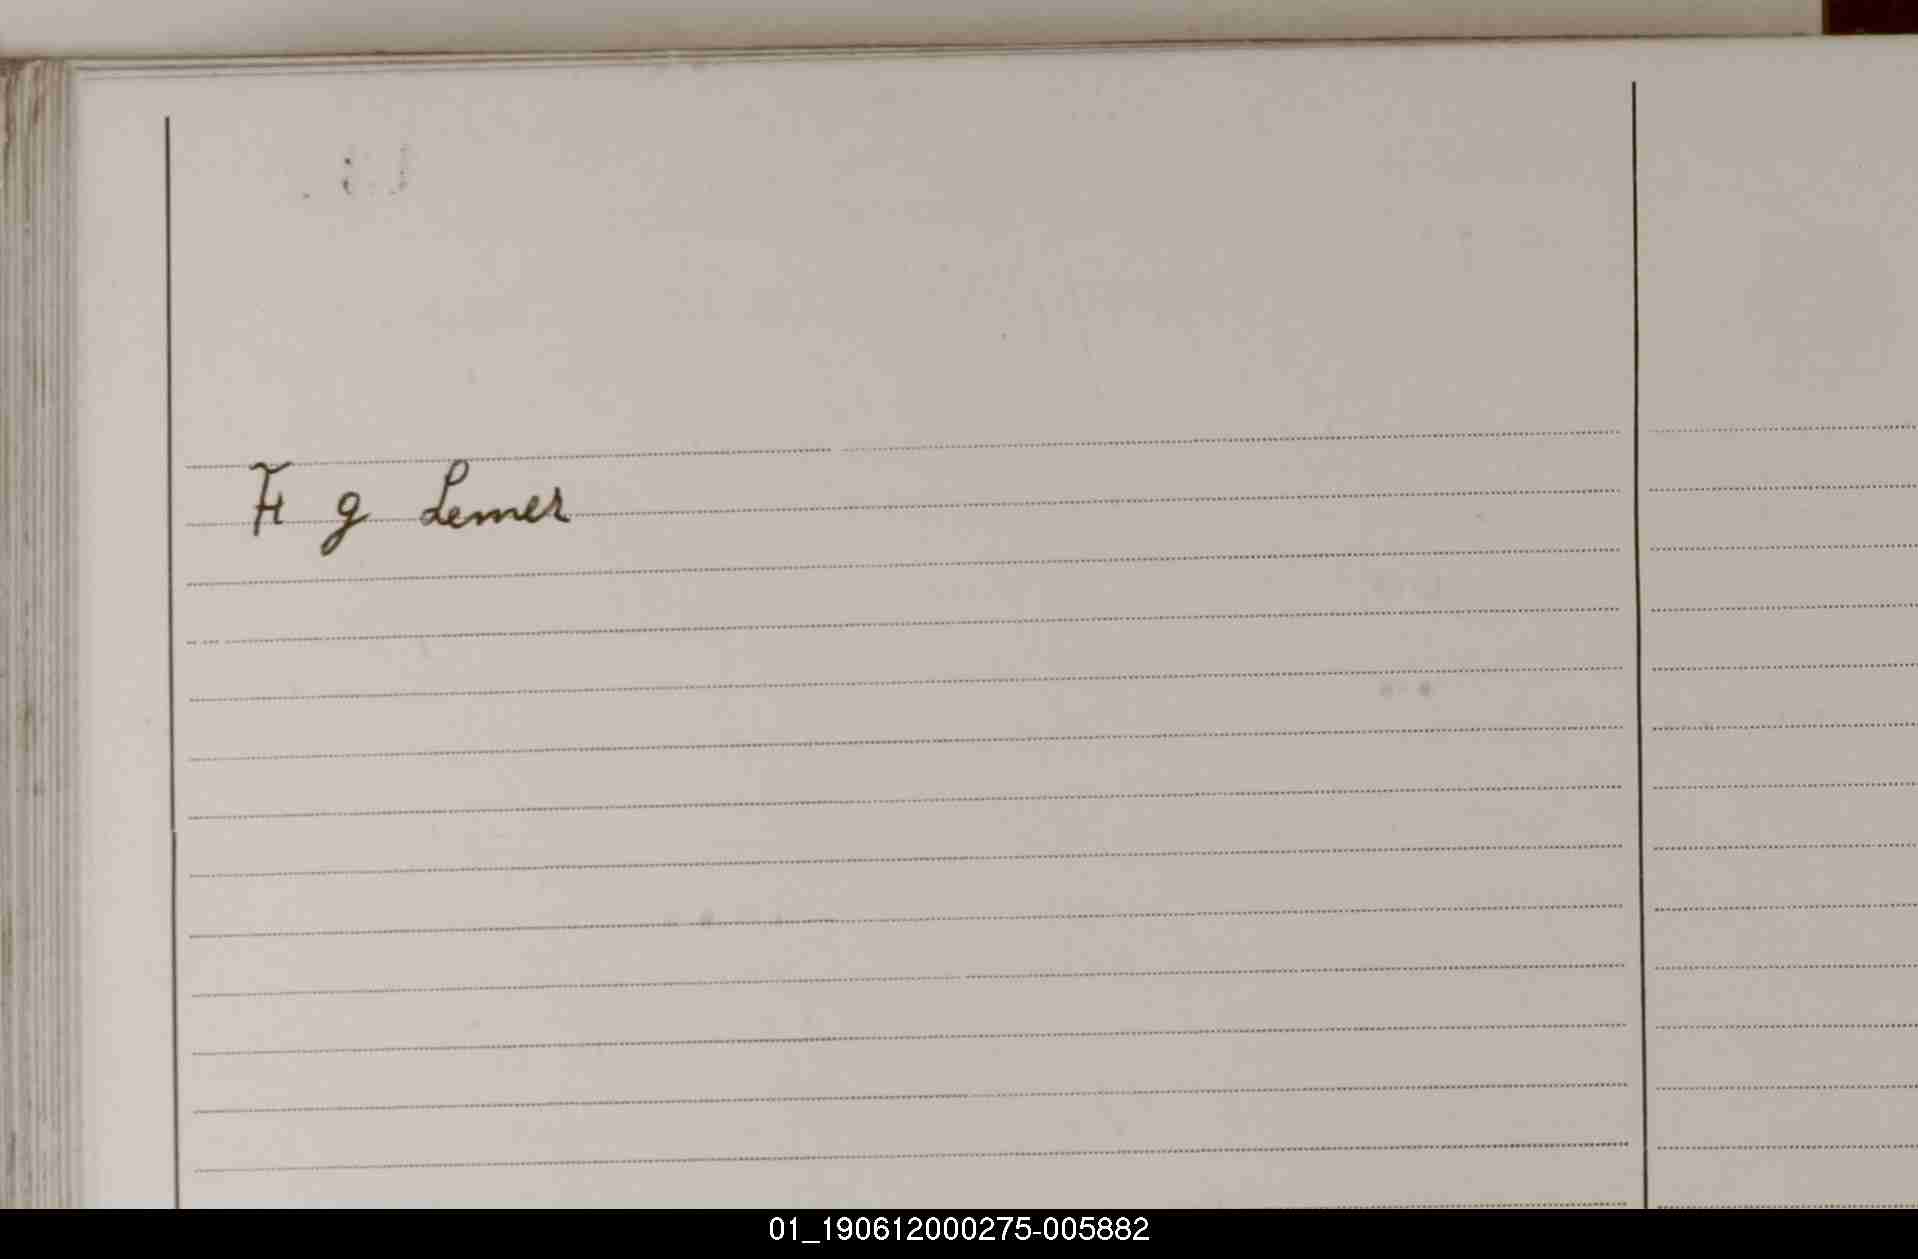 F g Lemer
01_190612000275-005882